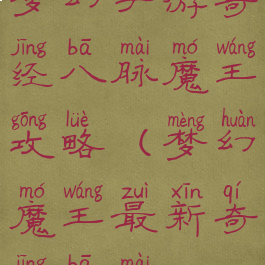 jīng bā mài mó wáng
经八脉魔王
gōng lüè mèng huàn
攻略（梦幻
mó wáng zuì xīn qí
魔王最新奇
jīng bā mài